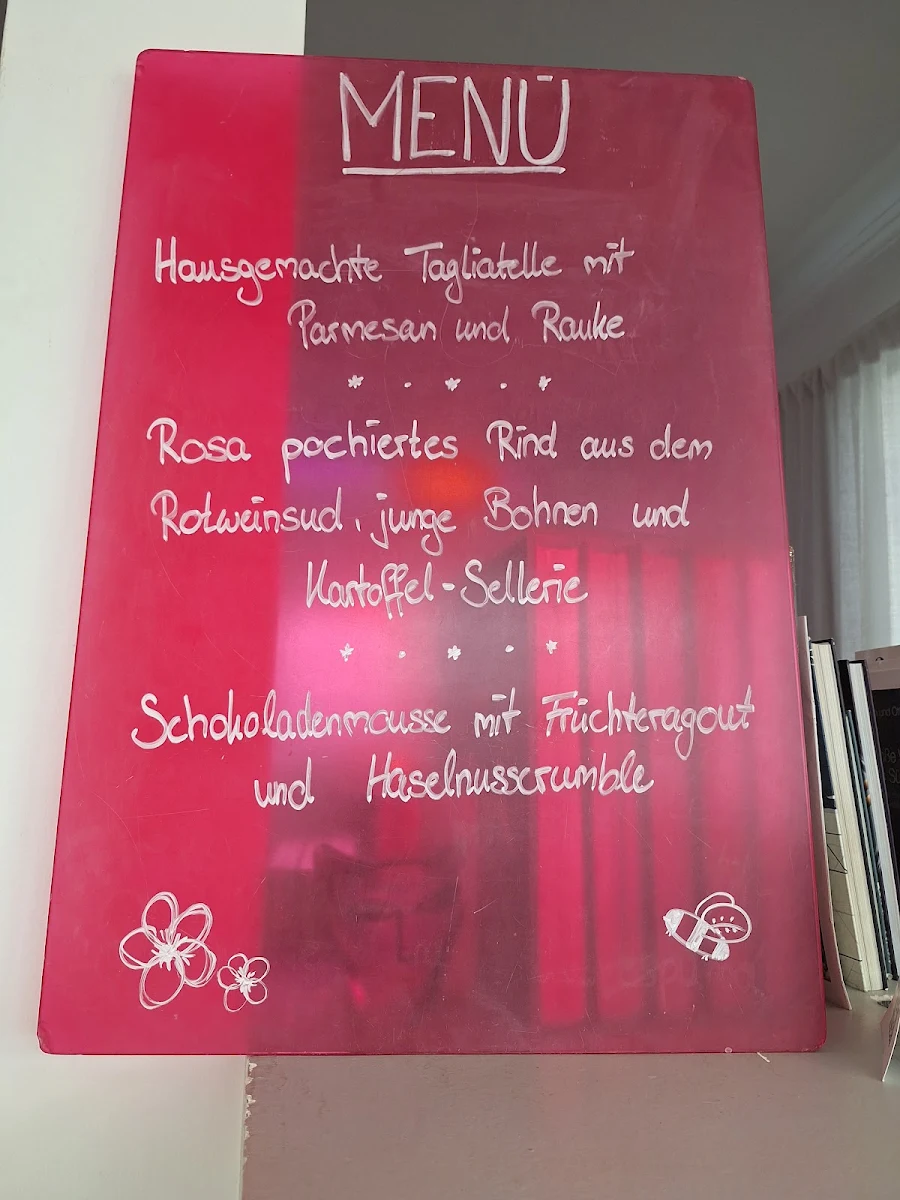 MENÜ
Hausgemachte Tagliatelle mit
Parmesan und Rauke
Rosa pochiertes Rind aus dem
Rotweinsud, junge Bohnen und
Kartoffel-Sellerie
Schokoladenmousse mit Früchteragout
und Haselnusscrumble